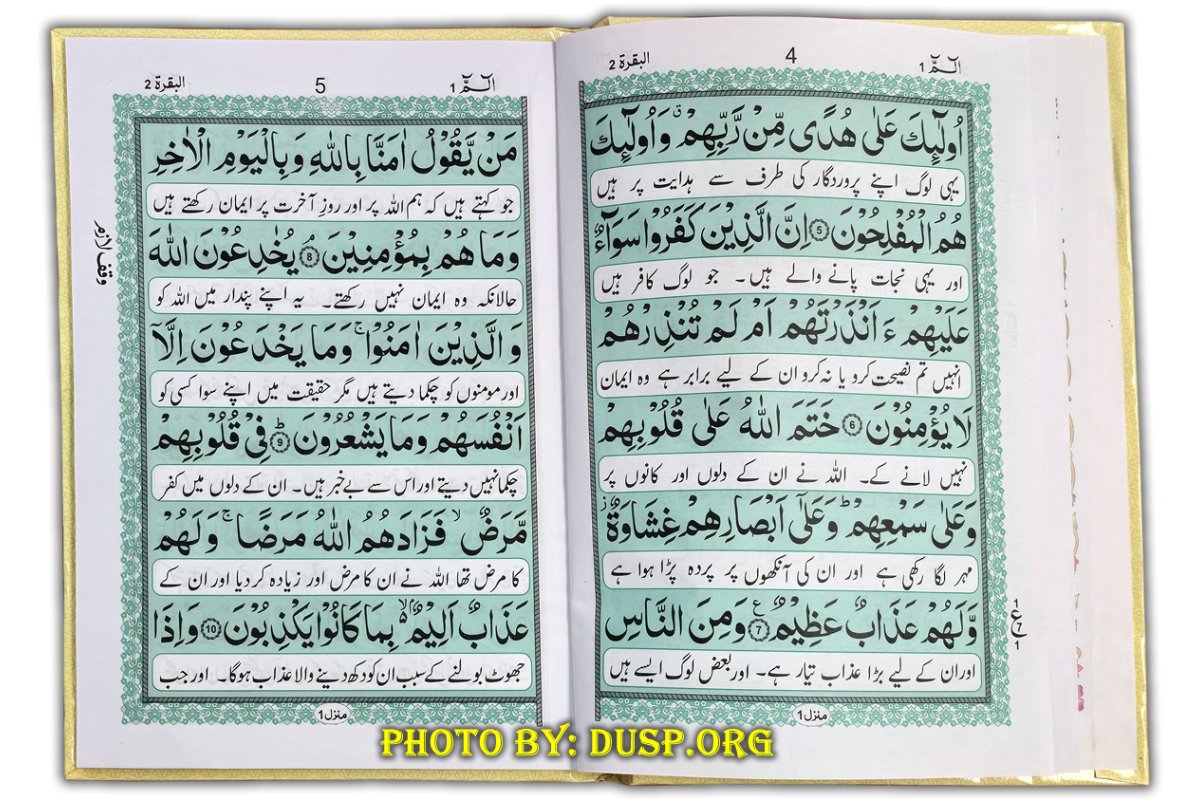 الٓمّٓ 1
4
البقرة 2
اُولٰٓئِكَ عَلٰى هُدًى مِّنْ رَّبِّهِمْ ۗ وَاُولٰٓئِكَ
یہی لوگ اپنے پروردگار کی طرف سے ہدایت پر ہیں
هُمُ الْمُفْلِحُوْنَ ۝5 اِنَّ الَّذِيْنَ كَفَرُوْا سَوَآءٌ
اور یہی نجات پانے والے ہیں۔ جو لوگ کافر ہیں
عَلَيْهِمْ ءَاَنْذَرْتَهُمْ اَمْ لَمْ تُنْذِرْهُمْ
انہیں تم نصیحت کرو یا نہ کرو ان کے لیے برابر ہے وہ ایمان
لَا يُؤْمِنُوْنَ ۝6 خَتَمَ اللّٰهُ عَلٰى قُلُوْبِهِمْ
نہیں لانے کے۔ اللہ نے ان کے دلوں اور کانوں پر
وَعَلٰى سَمْعِهِمْ ؕ وَعَلٰٓى اَبْصَارِهِمْ غِشَاوَةٌ ز
مہر لگا رکھی ہے اور ان کی آنکھوں پر پردہ پڑا ہوا ہے
وَّلَهُمْ عَذَابٌ عَظِيْمٌ ۝7 ع وَمِنَ النَّاسِ
اوران کے لیے بڑا عذاب تیار ہے۔ اوربعض لوگ ایسے ہیں
1
ع
7
1
منزل 1
الٓمّٓ 1
5
البقرة 2
مَنْ يَّقُوْلُ اٰمَنَّا بِاللّٰهِ وَبِالْيَوْمِ الْاٰخِرِ
جو کہتے ہیں کہ ہم اللہ پر اور روزِ آخرت پر ایمان رکھتے ہیں
وَمَا هُمْ بِمُؤْمِنِيْنَ ۝8 يُخٰدِعُوْنَ اللّٰهَ
حالانکہ وہ ایمان نہیں رکھتے۔ یہ اپنے پندار میں اللہ کو
وقف لازم
وَالَّذِيْنَ اٰمَنُوْا ۚ وَمَا يَخْدَعُوْنَ اِلَّآ
اور مومنوں کو چکما دیتے ہیں مگر حقیقت میں اپنے سوا کسی کو
اَنْفُسَهُمْ وَمَا يَشْعُرُوْنَ ۝9 ؕ فِيْ قُلُوْبِهِمْ
چکمانہیں دیتے اور اس سے بےخبر ہیں۔ ان کے دلوں میں کفر
مَّرَضٌ ۙ فَزَادَهُمُ اللّٰهُ مَرَضًا ۚ وَلَهُمْ
کا مرض تھا اللہ نے ان کا مرض اور زیادہ کر دیا اور ان کے
عَذَابٌ اَلِيْمٌۢ ۙ بِمَا كَانُوْا يَكْذِبُوْنَ ۝10 وَاِذَا
جھوٹ بولنے کے سبب ان کو دکھ دینے والا عذاب ہوگا۔ اور جب
منزل 1
PHOTO BY: DUSP.ORG